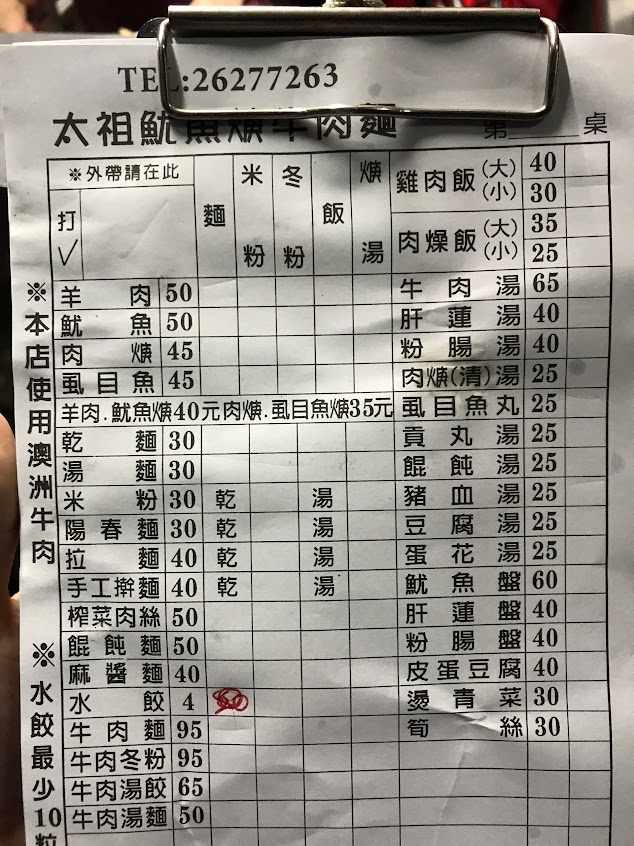 TEL:26277263
太祖魷魚焿牛肉麵 第 桌
※外帶請在此
打√
麵 米粉 冬粉 飯 焿湯
雞肉飯 (大) 40
(小) 30
肉燥飯 (大) 35
(小) 25
羊肉 50 牛肉湯 65
魷魚 50 肝蓮湯 40
肉焿 45 粉腸湯 40
虱目魚 45 肉焿(清)湯 25
羊肉.魷魚焿40元肉焿.虱目魚焿35元 虱目魚丸 25
乾麵 30 貢丸湯 25
湯麵 30 餛飩湯 25
米粉 30 乾 湯 豬血湯 25
陽春麵 30 乾 湯 豆腐湯 25
拉麵 40 乾 湯 蛋花湯 25
手工擀麵 40 乾 湯 魷魚盤 60
榨菜肉絲 50 肝蓮盤 40
餛飩麵 50 粉腸盤 40
麻醬麵 40 皮蛋豆腐 40
水餃 4 燙青菜 30
牛肉麵 95 筍絲 30
牛肉冬粉 95
牛肉湯餃 65
牛肉湯麵 50
※本店使用澳洲牛肉
※水餃最少10粒